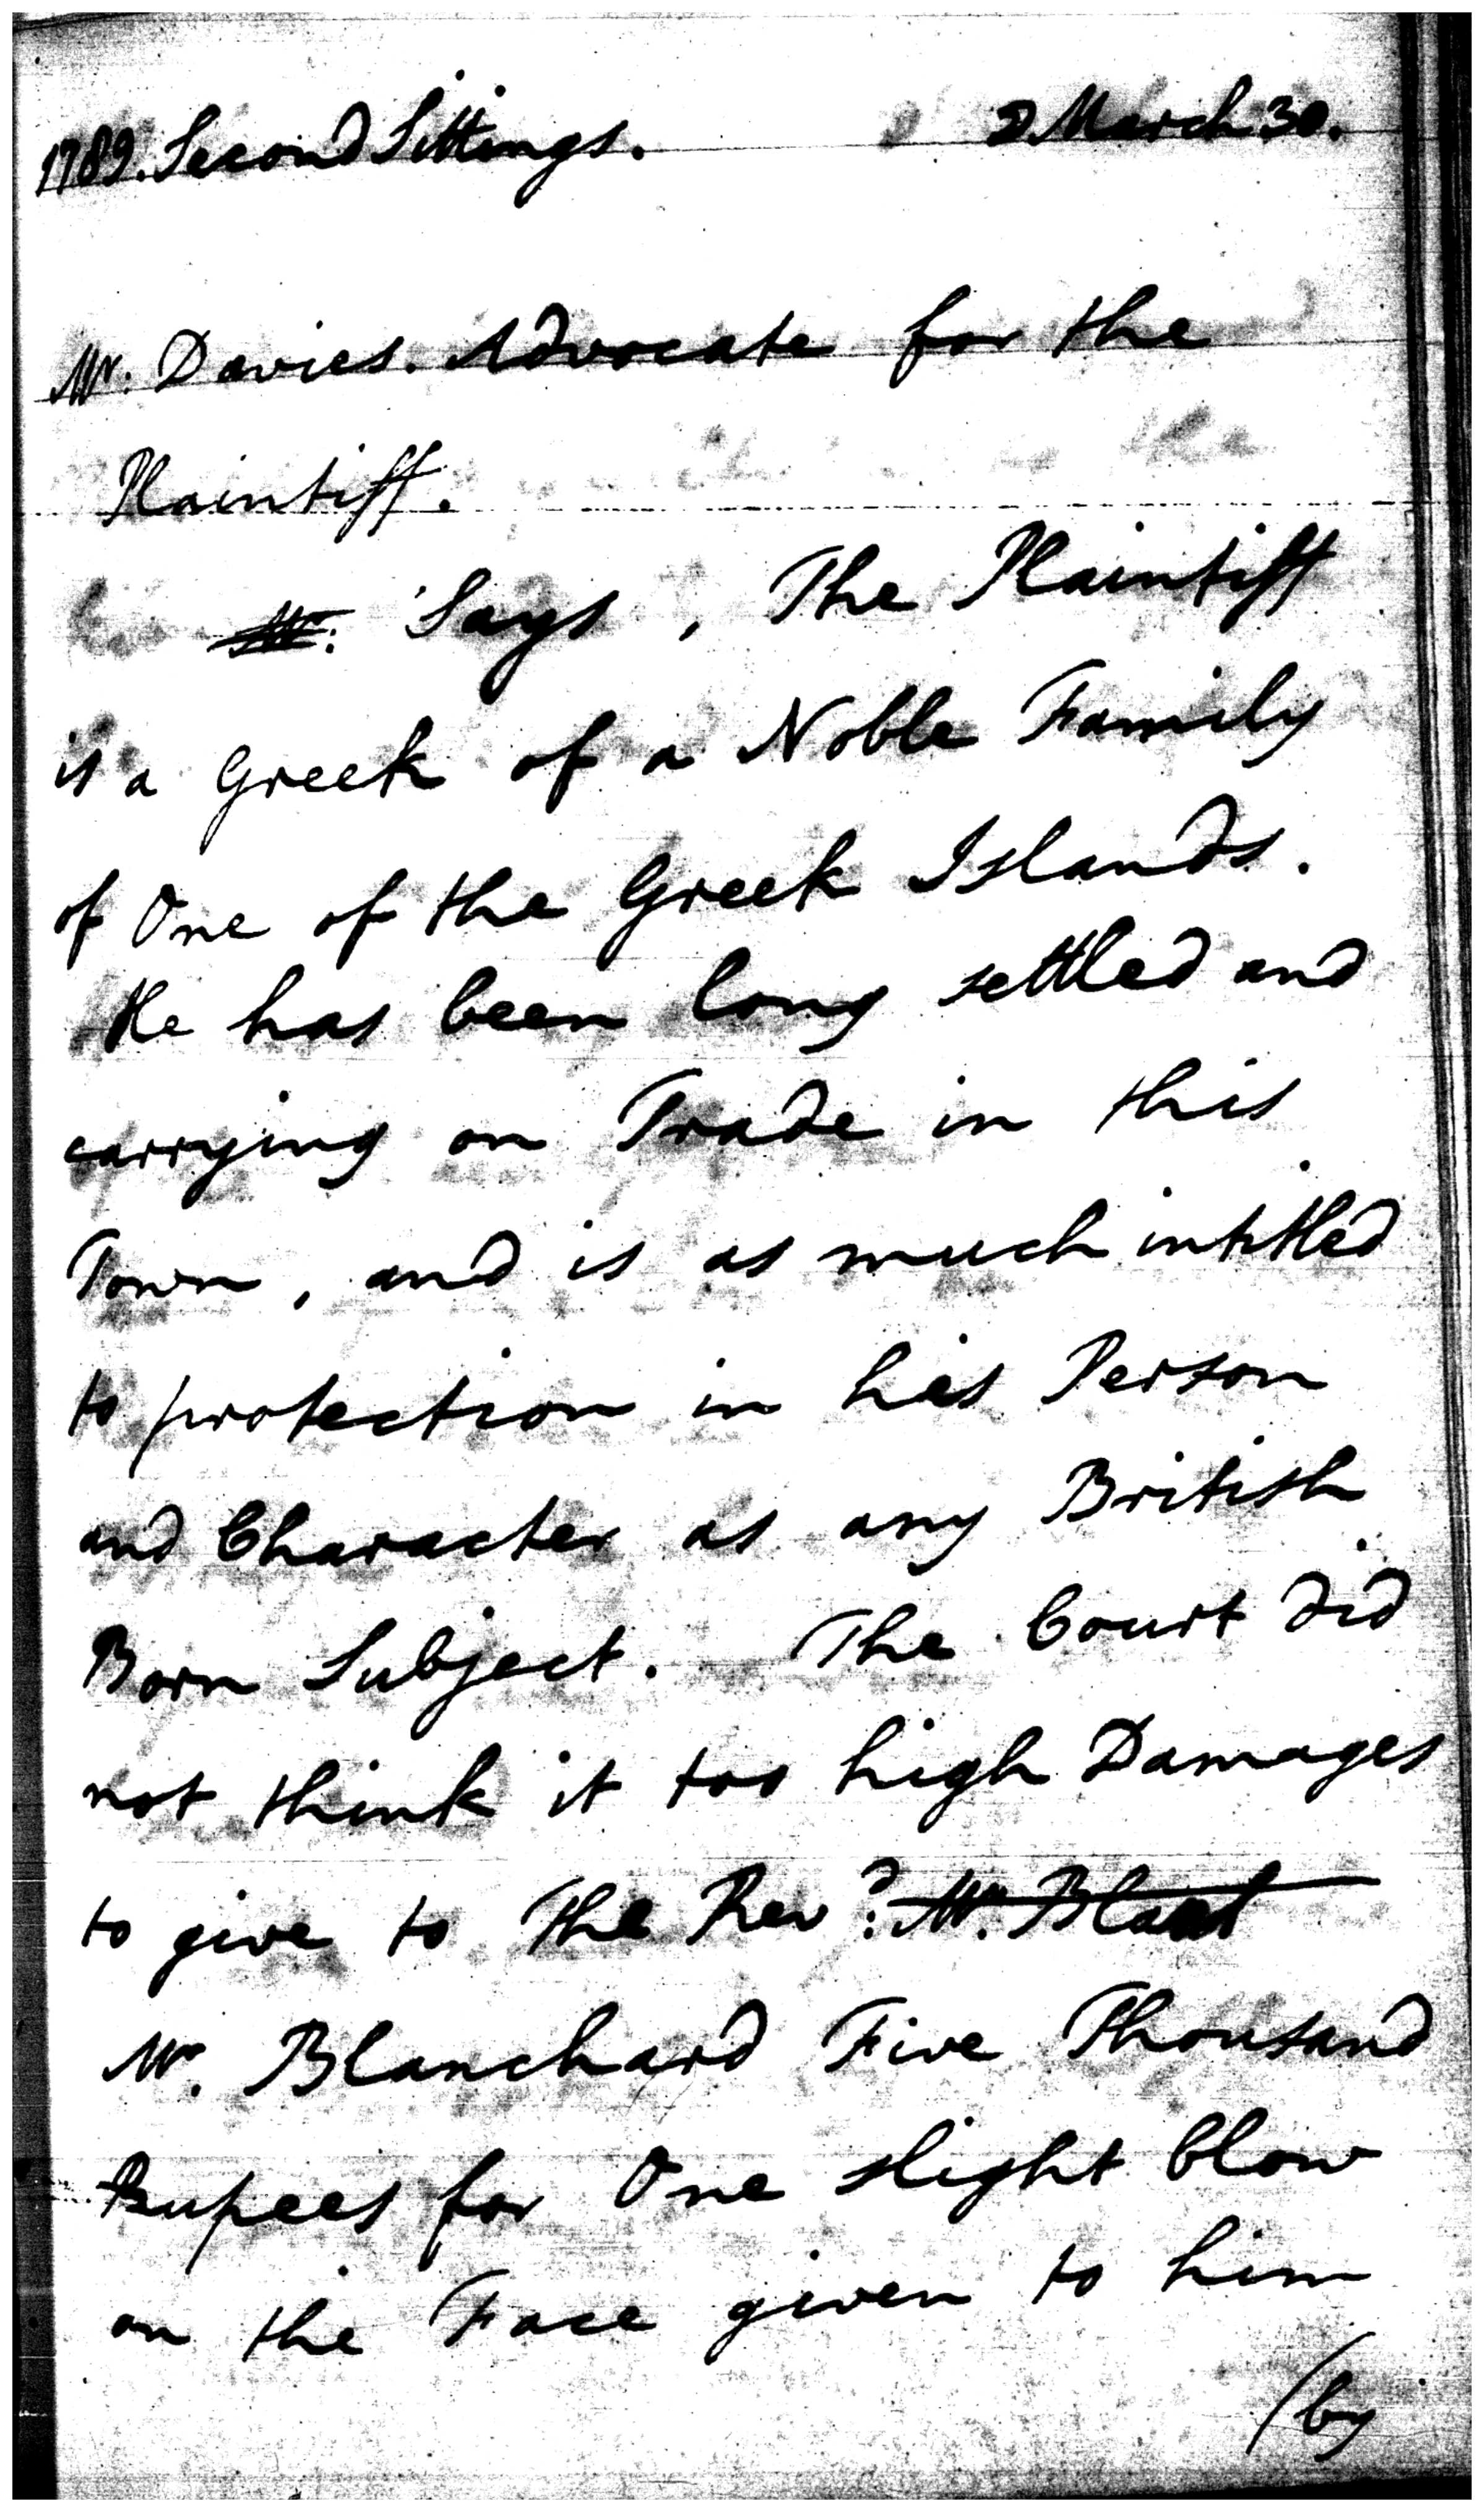 1789. Second Sittings. March 30.
Mr. Davies. Advocate for the
Plaintiff.
Mr. Says, The Plaintiff
is a Greek of a Noble Family
of One of the Greek Islands.
He has been long settled and
carrying on Trade in this
Town, and is as much intitled
to protection in his Person
and Character as any British
Born Subject. The Court did
not think it too high Damages
to give to the Revd. Mr. Bland
Mr. Blanchard Five Thousand
Rupees for One slight blow
on the Face given to him
(by